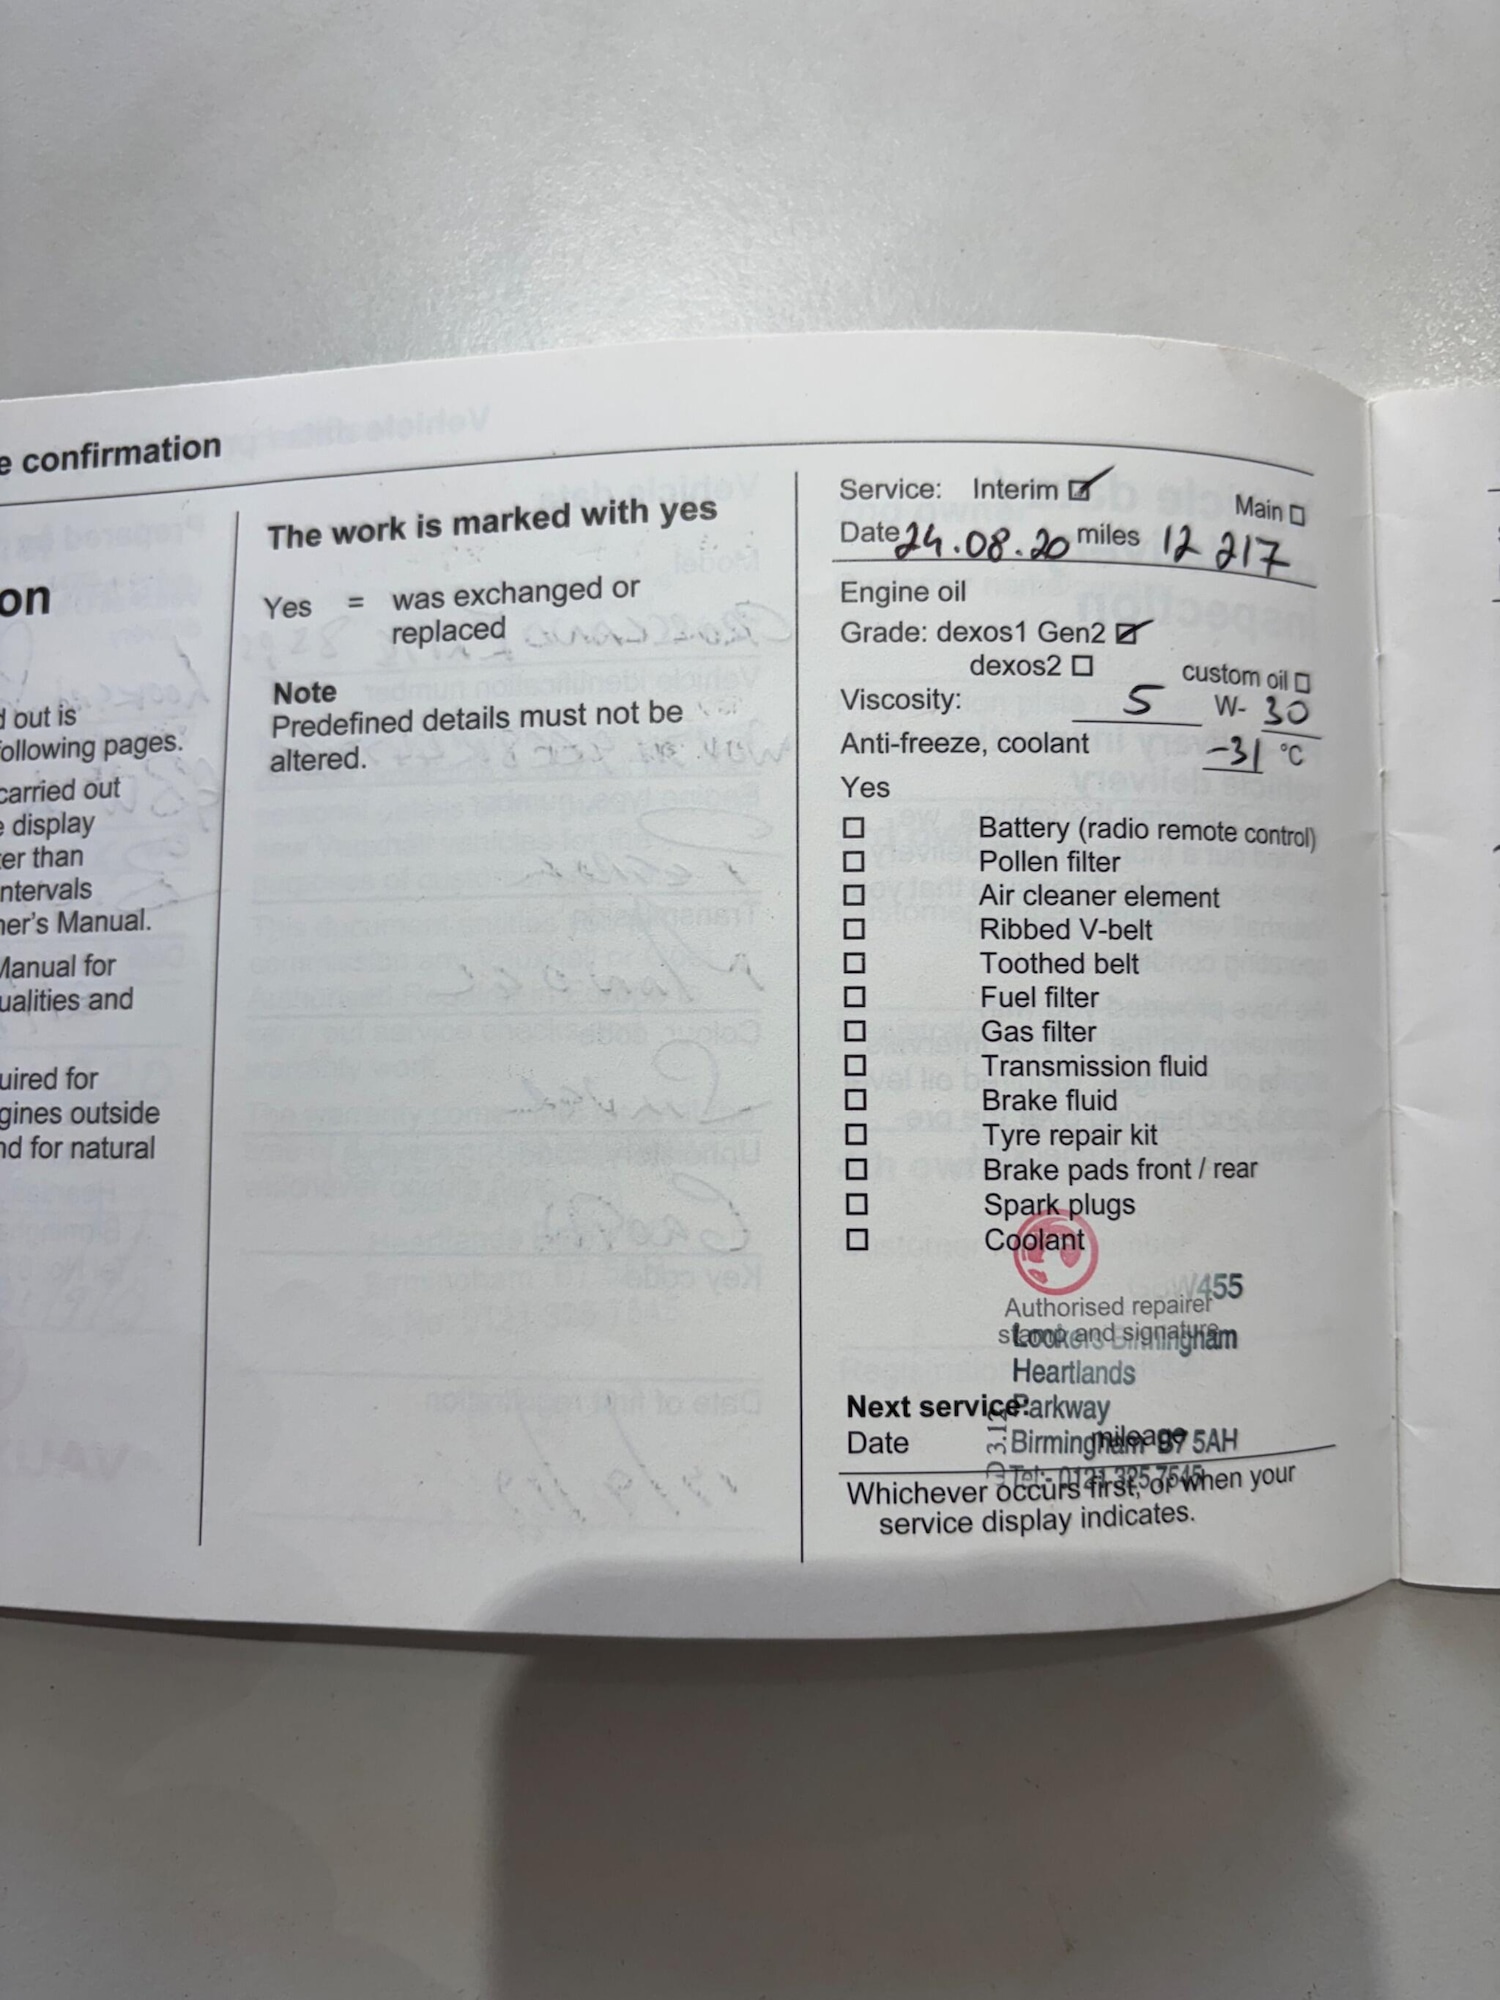 e confirmation
on
d out is
following pages.
carried out
e display
ter than
ntervals
ner's Manual.
Manual for
ualities and
uired for
gines outside
nd for natural
The work is marked with yes
Yes = was exchanged or
replaced
Note
Predefined details must not be
altered.
Service: Interim ☑ Main ☐
Date 24.08.20 miles 12 217
Engine oil
Grade: dexos1 Gen2 ☑
dexos2 ☐ custom oil ☐
Viscosity: 5 W- 30
Anti-freeze, coolant -31 °C
Yes
☐ Battery (radio remote control)
☐ Pollen filter
☐ Air cleaner element
☐ Ribbed V-belt
☐ Toothed belt
☐ Fuel filter
☐ Gas filter
☐ Transmission fluid
☐ Brake fluid
☐ Tyre repair kit
☐ Brake pads front / rear
☐ Spark plugs
☐ Coolant
W455
Authorised repairer
stamp and signature
Lookers Birmingham
Heartlands
Parkway
Birmingham B7 5AH
Tel:- 0121 325 7545
Next service:
Date mileage
Whichever occurs first, or when your
service display indicates.